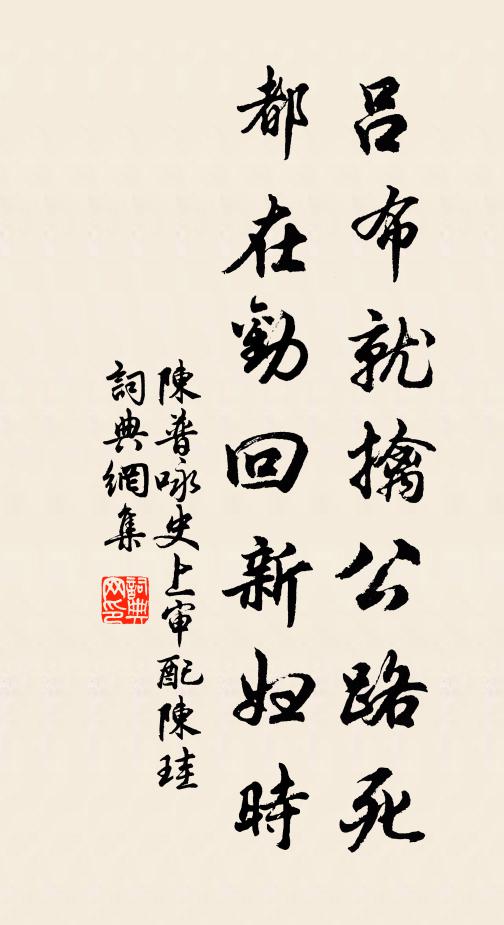 呂布就擒公路死
都在勸回新妇時
陳普咏史上审配陳珪
詞典網集
詞典网印